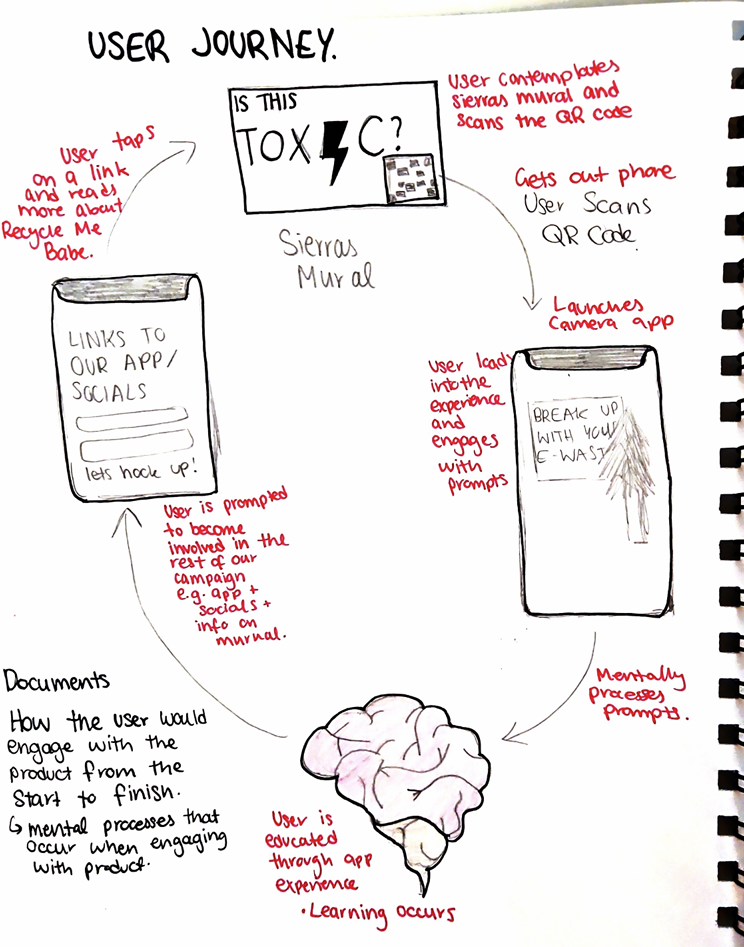 USER JOURNEY.
IS THIS
TOX C?
Sierras
Mural
User contemplates
sierras mural and
scans the QR code
Gets out phone
User Scans
QR Code
Launches
Camera app
User loads
into the
experience
and
engages
with
prompts
BREAK UP
WITH YOU
E-WAST
Mentally
processes
prompts.
User is
educated
through app
experience
• Learning occurs
User is prompted
to become
involved in the
rest of our
campaign
e.g. app +
socials +
info on
murnal.
LINKS TO
OUR APP/
SOCIALS
lets hook up!
User taps
on a link
and reads
more about
Recycle Me
Babe.
Documents
How the user would
engage with the
product from the
Start to finish.
↳ mental processes that
occur when engaging
with product.